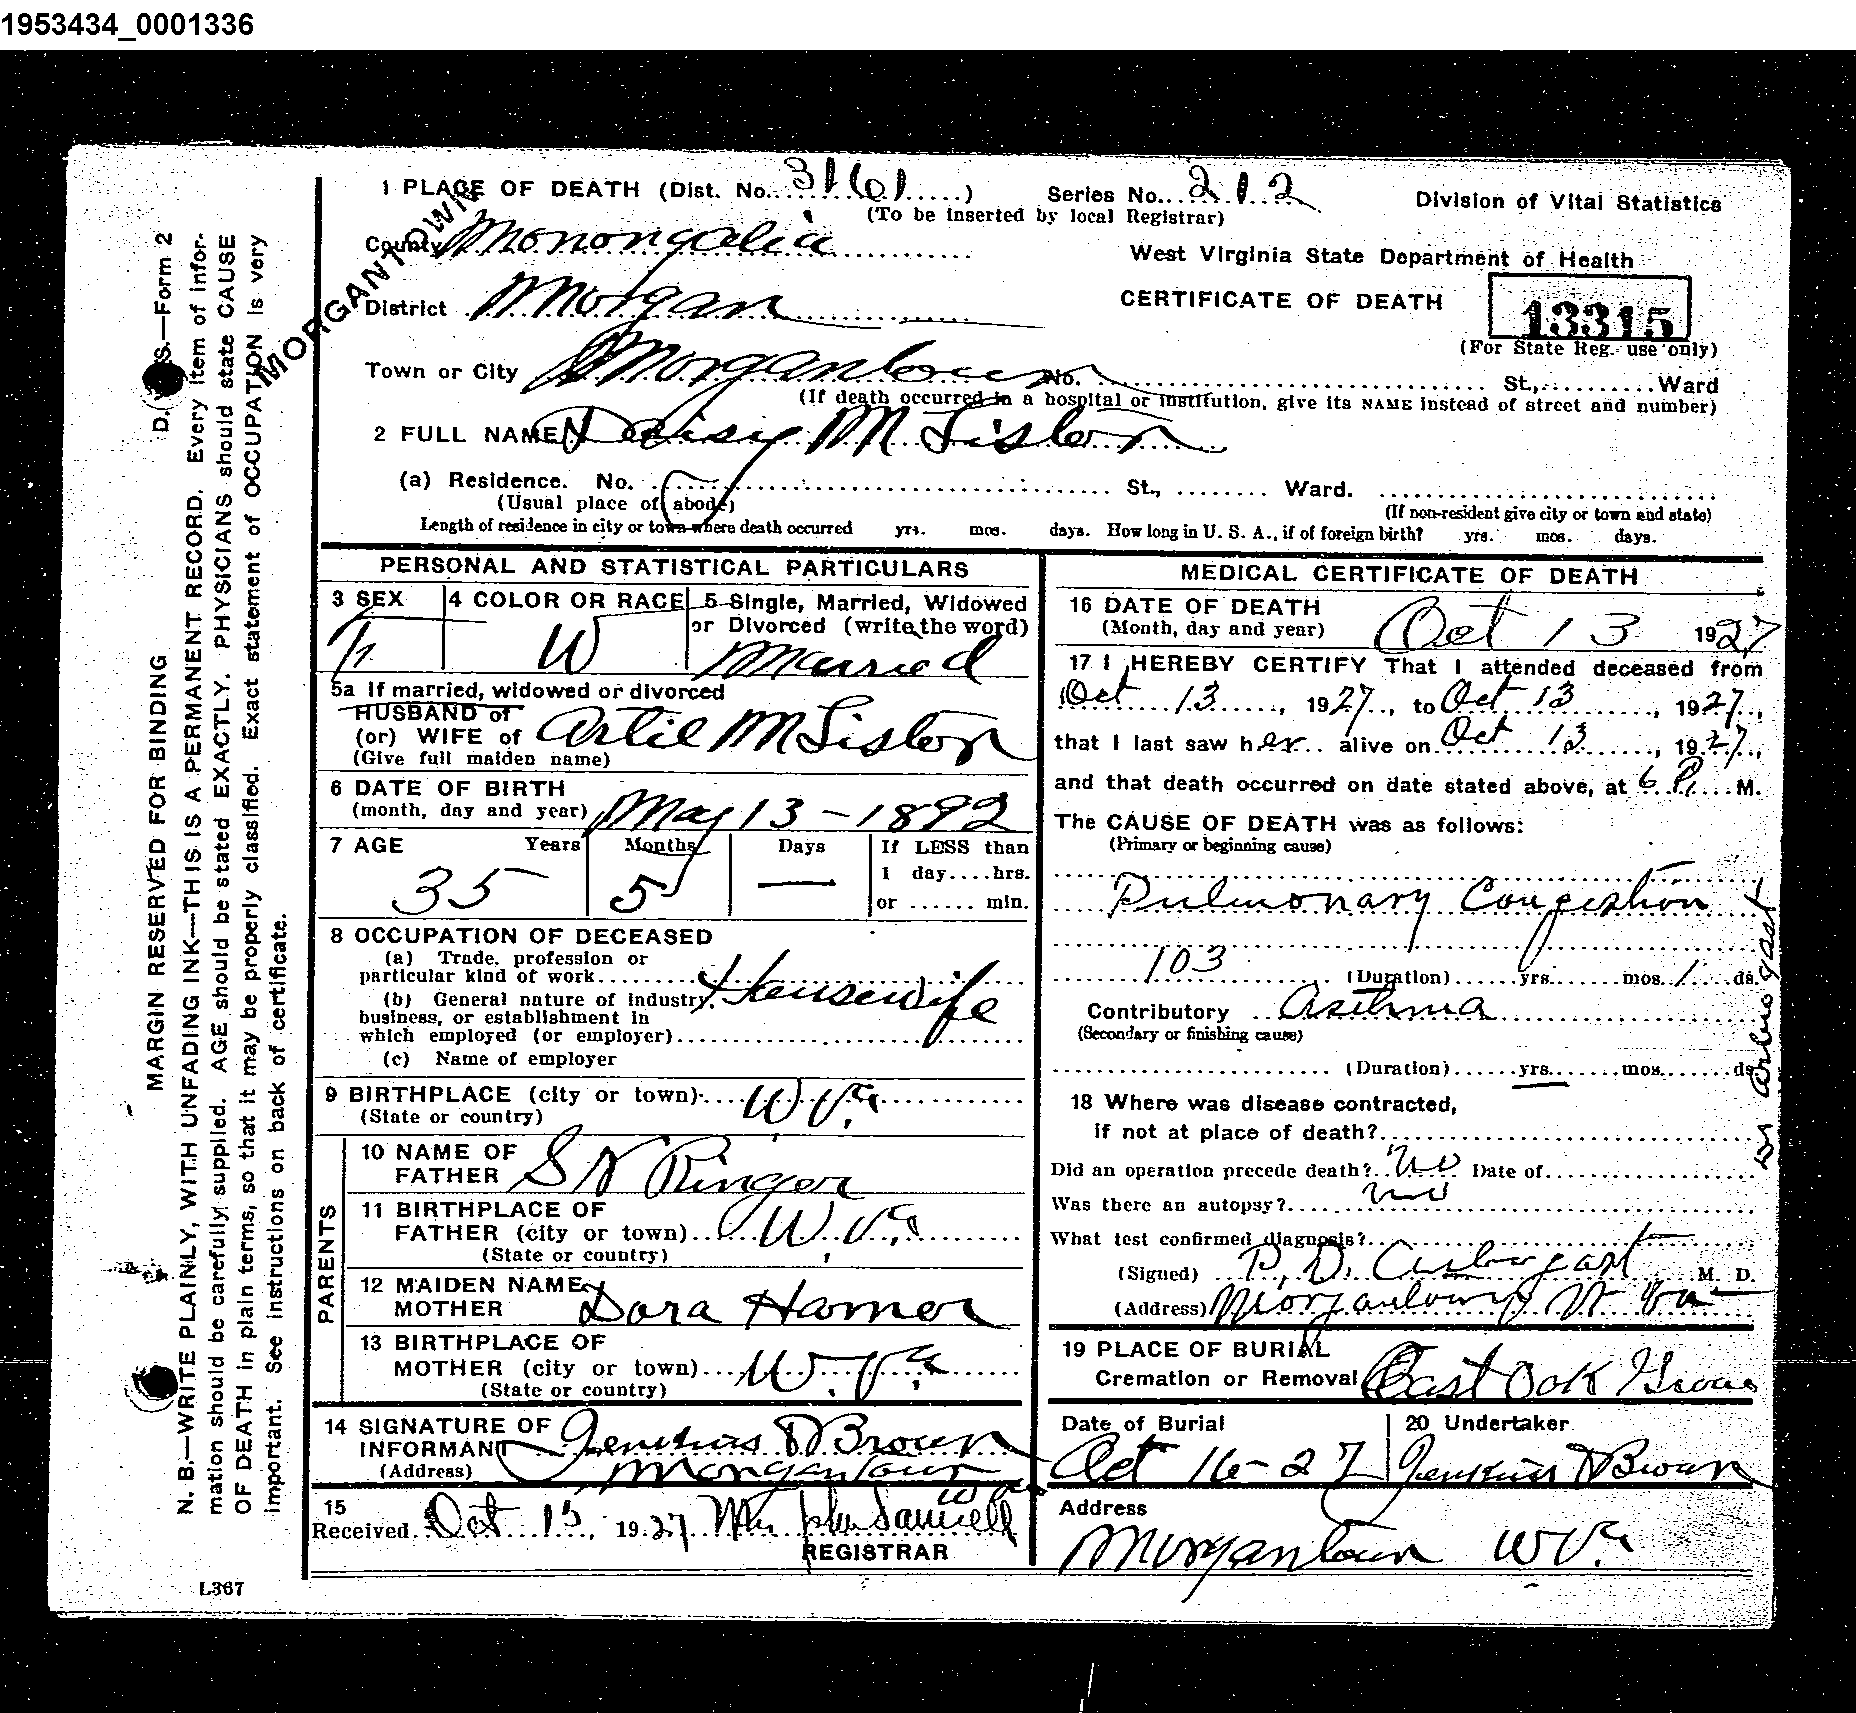 1953434_0001336
1 PLACE OF DEATH (Dist. No. 3161 ) Series No. 212 Division of Vital Statistics
(To be inserted by local Registrar)
MORGANTOWN
County Monongalia West Virginia State Department of Health
District Morgan CERTIFICATE OF DEATH 13315
(For State Reg. use only)
Town or City Morgantown No. St., Ward
(If death occurred in a hospital or institution, give its NAME instead of street and number)
2 FULL NAME Daisy M Liston
(a) Residence. No. St., Ward.
(Usual place of abode) (If non-resident give city or town and state)
Length of residence in city or town where death occurred yrs. mos. days. How long in U. S. A., if of foreign birth? yrs. mos. days.
PERSONAL AND STATISTICAL PARTICULARS
3 SEX 4 COLOR OR RACE 5 Single, Married, Widowed
or Divorced (write the word)
F W Married
5a If married, widowed or divorced
HUSBAND of
(or) WIFE of Artie M Liston
(Give full maiden name)
6 DATE OF BIRTH
(month, day and year) May 13 - 1892
7 AGE Years Months Days If LESS than
1 day....hrs.
35 5 —
or ...... min.
8 OCCUPATION OF DECEASED
(a) Trade, profession or
particular kind of work Housewife
(b) General nature of industry,
business, or establishment in
which employed (or employer)
(c) Name of employer
9 BIRTHPLACE (city or town) W. Va.
(State or country)
PARENTS
10 NAME OF
FATHER S N Ringer
11 BIRTHPLACE OF
FATHER (city or town) W. Va.
(State or country)
12 MAIDEN NAME
MOTHER Dora Hamer
13 BIRTHPLACE OF
MOTHER (city or town) W. Va.
(State or country)
14 SIGNATURE OF
INFORMANT Jenkins & Brown
(Address) Morgantown W Va
15
Received Oct 15, 1927
REGISTRAR
MEDICAL CERTIFICATE OF DEATH
16 DATE OF DEATH
(Month, day and year) Oct 13 1927
17 I HEREBY CERTIFY That I attended deceased from
Oct 13, 1927, to Oct 13, 1927,
that I last saw her alive on Oct 13, 1927,
and that death occurred on date stated above, at 6 P. M.
The CAUSE OF DEATH was as follows:
(Primary or beginning cause)
Pulmonary Congestion
103 (Duration) yrs. mos. 1 ds.
Contributory Asthma
(Secondary or finishing cause)
(Duration) yrs. mos. ds.
18 Where was disease contracted,
if not at place of death?
Did an operation precede death? No Date of
Was there an autopsy? no
What test confirmed diagnosis?
(Signed) P. D. Arbogast M. D.
(Address) Morgantown W Va
Dr Arbogast
19 PLACE OF BURIAL
Cremation or Removal East Oak Grove
Date of Burial 20 Undertaker
Oct 16-27 Jenkins & Brown
Address
Morgantown W Va.
D. V. S.—Form 2
MARGIN RESERVED FOR BINDING
N. B.—WRITE PLAINLY, WITH UNFADING INK—THIS IS A PERMANENT RECORD. Every item of infor-
mation should be carefully supplied. AGE should be stated EXACTLY. PHYSICIANS should state CAUSE
OF DEATH in plain terms, so that it may be properly classified. Exact statement of OCCUPATION is very
important. See instructions on back of certificate.
L367